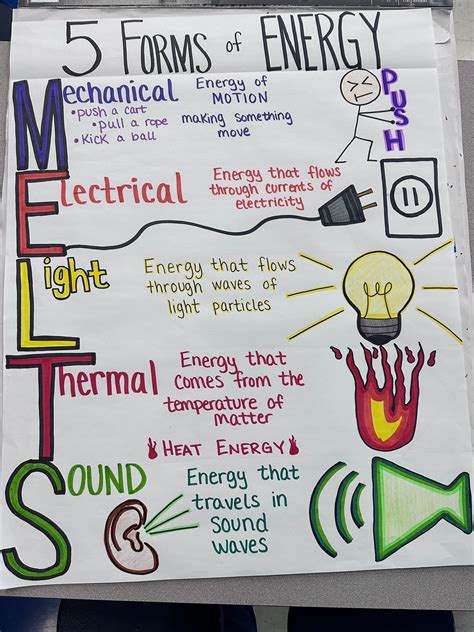 5 FORMS of ENERGY
Mechanical
• push a cart
• pull a rope
• Kick a ball
Energy of
MOTION
making something
move
PUSH
Electrical
Energy that flows
through currents of
electricity
Light
Energy that flows
through waves of
light particles
Thermal
Energy that
comes from the
temperature of
matter
HEAT ENERGY
SOUND
Energy that
travels in
Sound
waves